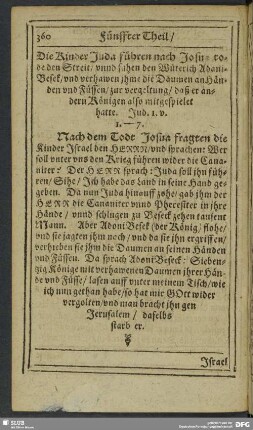 360 Fünffter Theil/
Die Kinder Juda führen nach Josu= to=
de den Streit/ vnnd fahen den Wüterich Adoni=
Besek/ vnd verhawen jhme die Daumen an Hän=
den vnd Füssen/ zur vergeltung/ daß er an=
dern Königen also mitgespielet
hatte. Jud. 1. v.
1. — 7.
Nach dem Tode Josua fragten die
Kinder Israel den HERRN/ vnd sprachen: Wer
soll vnter vns den Krieg führen wider die Cana=
niter? Der HERR sprach: Juda soll ihn füh=
ren/ Sihe/ Ich habe das Land in seine Hand ge=
geben. Da nun Juda hinauff zohe/ gab jhm der
HERR die Cananiter vnnd Pheresiter in ihre
Hände/ vnnd schlugen zu Beseck zehen tausent
Mann. Aber Adoni Beseck (der König) flohe/
vnd sie jagten jhm nach/ vnd da sie jhn ergriffen/
verhieben sie jhm die Daumen an seinen Händen
vnd Füssen. Da sprach Adoni Beseck: Sieben=
tzig Könige mit verhawenen Daumen jhrer Hän=
de vnd Füsse/ lasen auff vnter meinem Tisch/ wie
ich nun gethan habe/ so hat mir GOtt wider
vergolten/ vnd man bracht jhn gen
Jerusalem/ daselbs
starb er.
Israel
SLUB
DFG